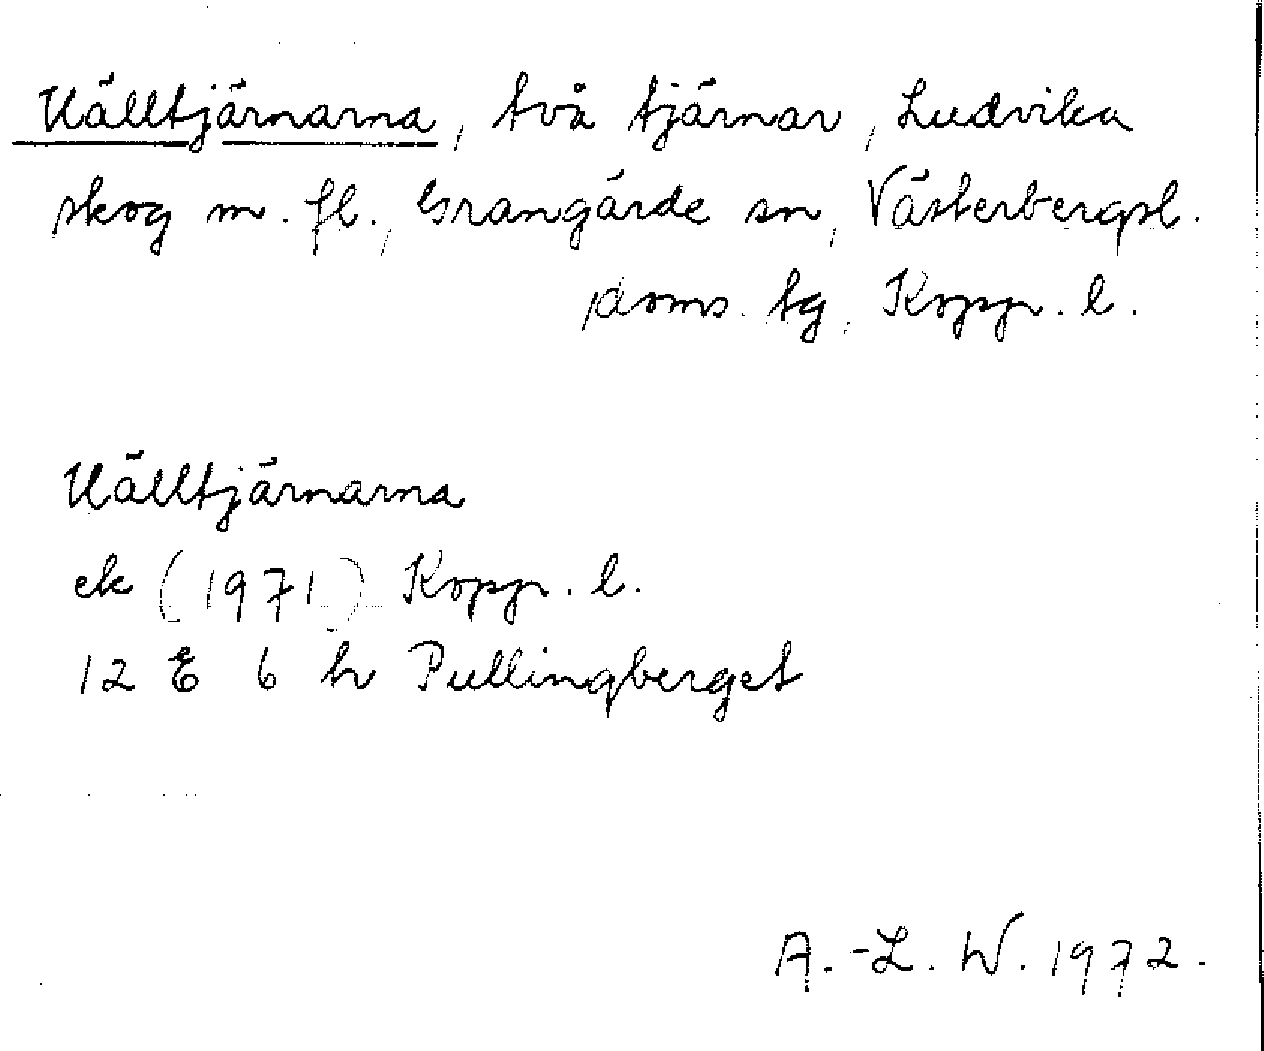 Källtjärnarna, två tjärnar, Ludvika
skog m. fl., Grangärde sn, Västerbergsl.
doms. tg, Kopp. l.
Källtjärnarna
ek (1971) Kopp. l.
12 E 6 h Pullingberget
A.-L. W. 1972.